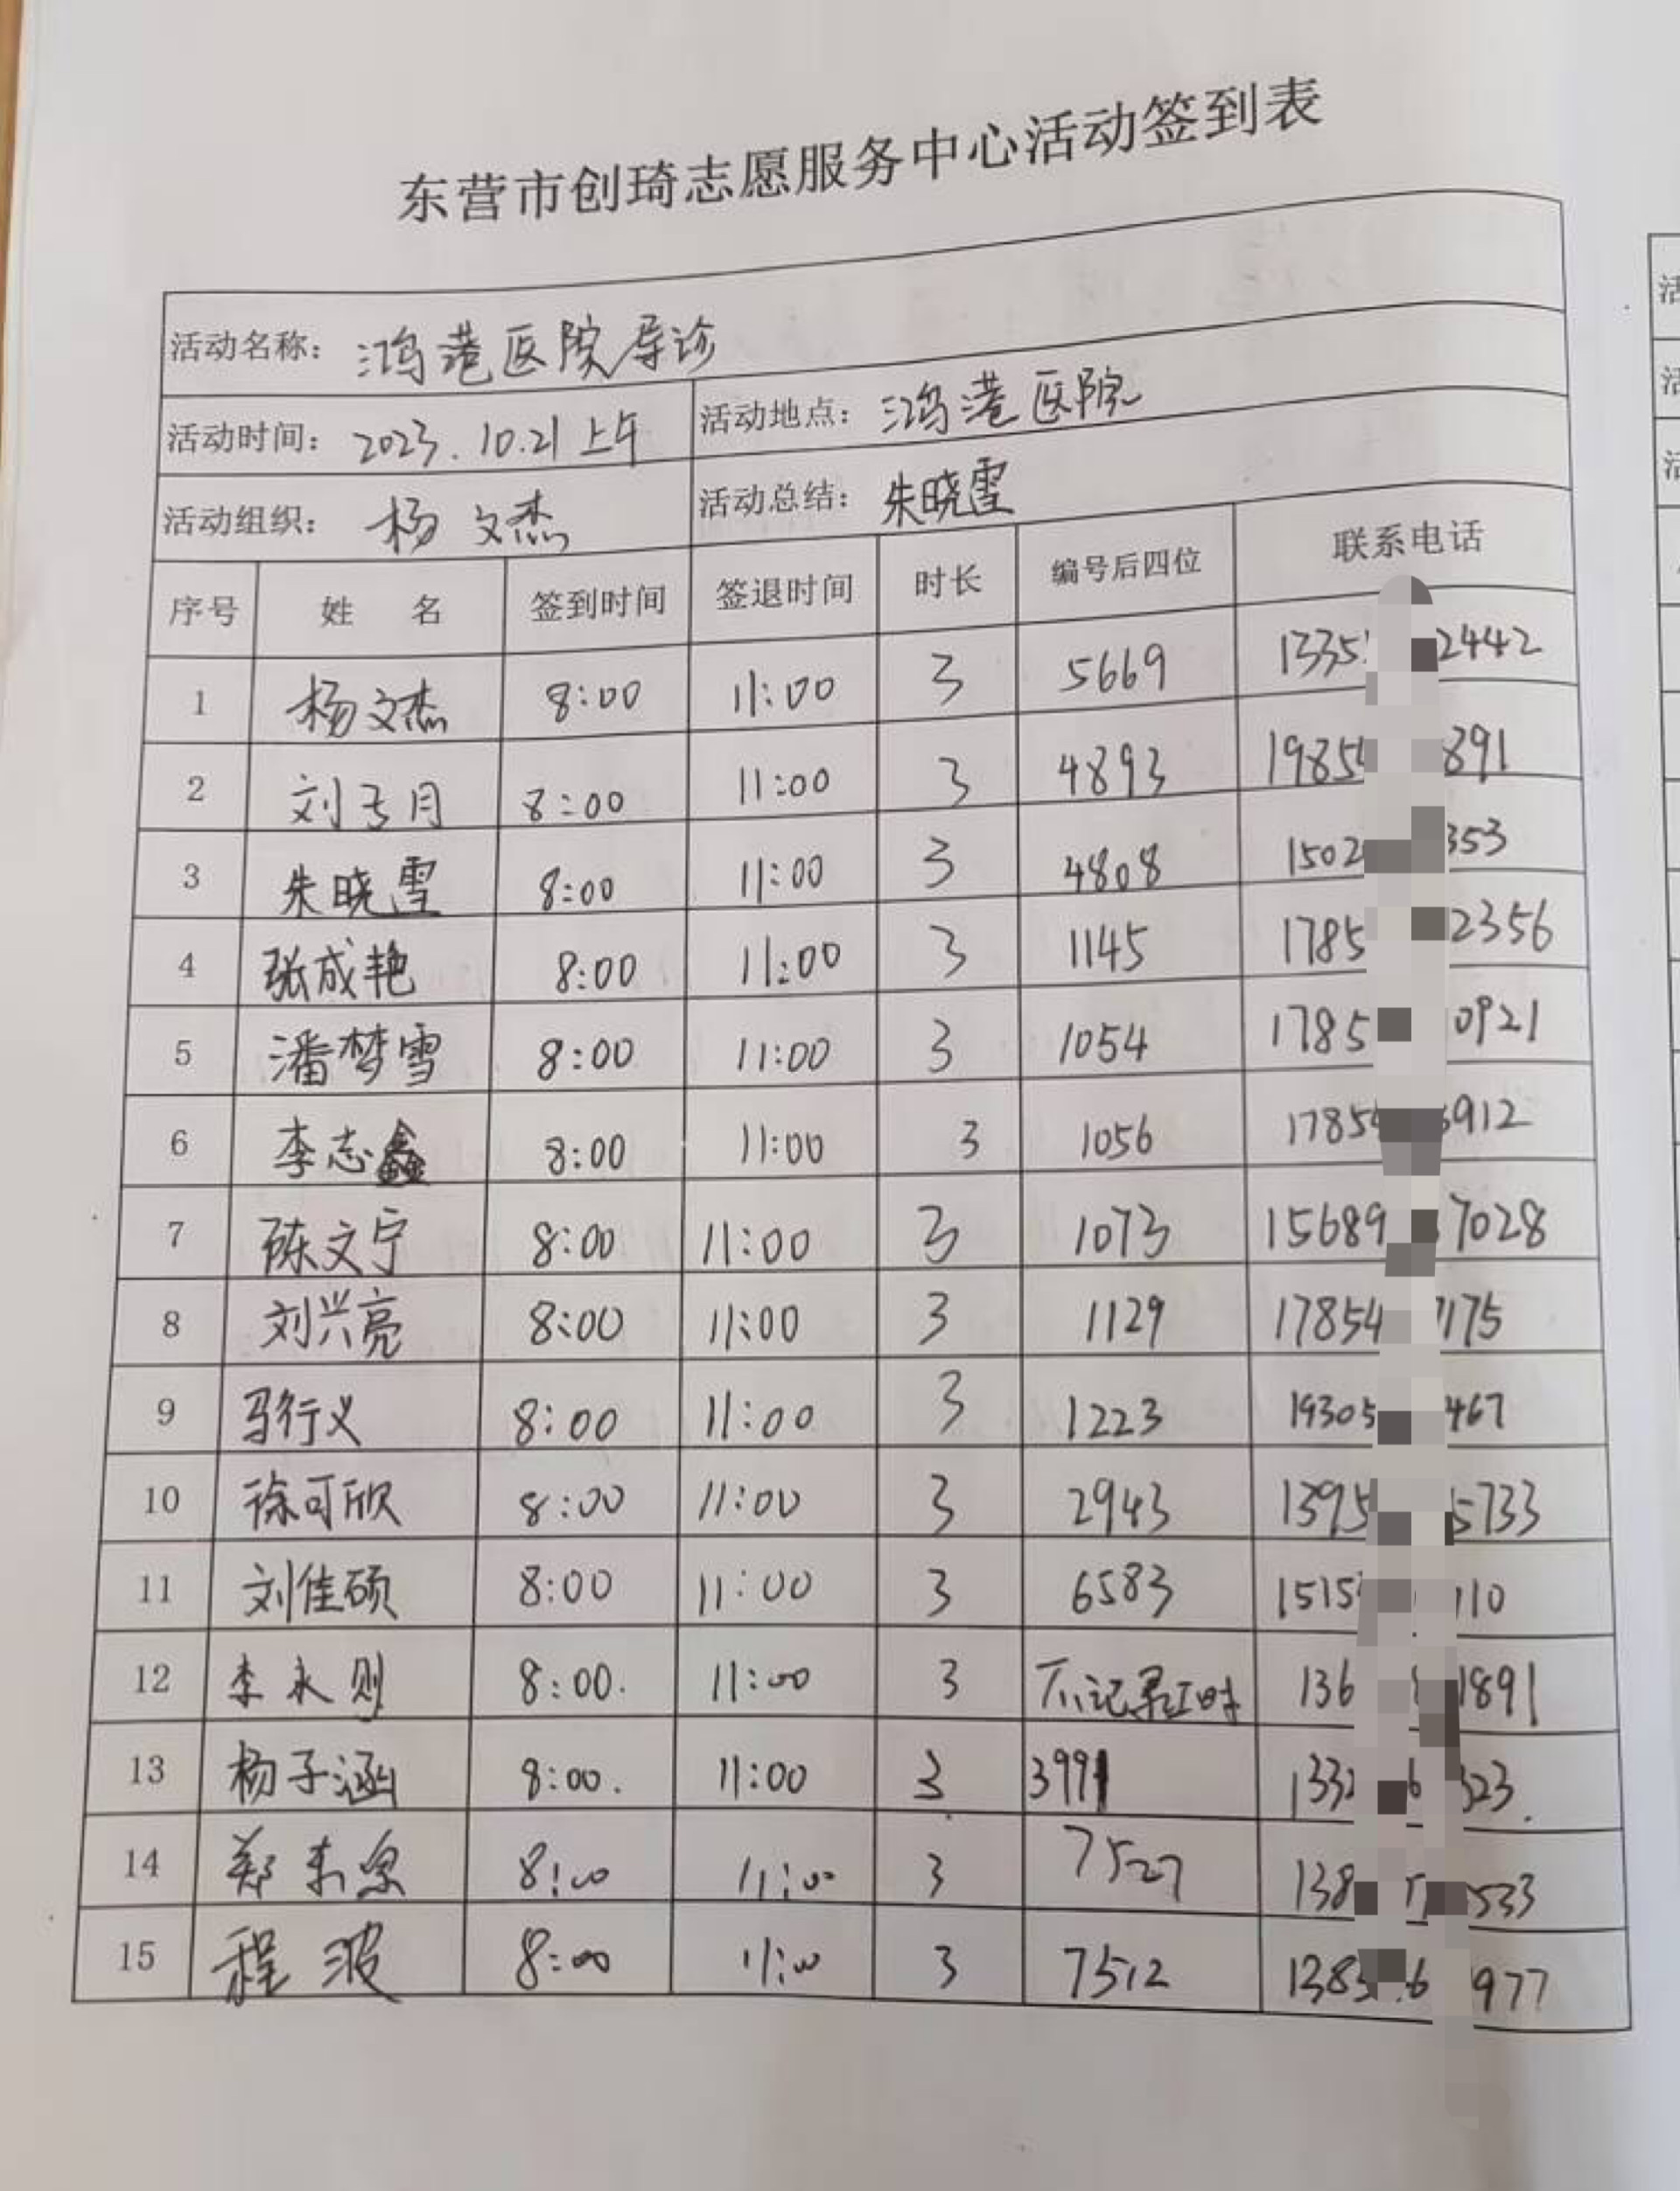 东营市创琦志愿服务中心活动签到表
活动名称： 鸿港医院导诊
活动时间： 2023.10.21上午 活动地点： 鸿港医院
活动组织： 杨文杰 活动总结： 朱晓雪
序号 姓 名 签到时间 签退时间 时长 编号后四位 联系电话
1 杨文杰 8:00 11:00 3 5669 1335 2442
2 刘子月 8:00 11:00 3 4893 1985 891
3 朱晓雪 8:00 11:00 3 4808 1502 353
4 张成艳 8:00 11:00 3 1145 1785 2356
5 潘梦雪 8:00 11:00 3 1054 1785 0921
6 李志鑫 8:00 11:00 3 1056 1785 912
7 陈文宁 8:00 11:00 3 1073 15689 7028
8 刘兴亮 8:00 11:00 3 1129 17854 175
9 马行义 8:00 11:00 3 1223 19305 467
10 徐可欣 8:00 11:00 3 2943 1395 5733
11 刘佳硕 8:00 11:00 3 6583 1515 110
12 李永则 8:00. 11:00 3 不记 时 136 1891
13 杨子涵 8:00. 11:00 3 3991 133 6 323.
14 郑 8:00 11:00 3 7527 138 533
15 程波 8:00 11:00 3 7512 1385 6 977